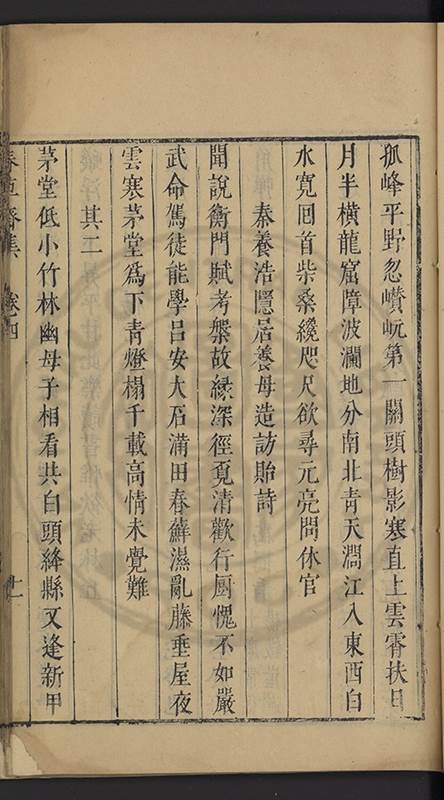 孤峰平野忽巑岏第一關頭樹影寒直上雲霄扶日
月半橫龍窟障波瀾地分南北青天濶江入東西白
水寬回首柴桑纔咫尺欲尋元亮問休官
秦養浩隱居養母造訪貽詩
聞說衡門賦考槃故緣深徑覔清歡行厨愧不如嚴
武命駕徒能學吕安大石蒲田春蘚濕亂藤垂屋夜
雲寒茅堂爲下青燈榻千載高情未覺難
其二
茅堂低小竹林幽母子相看共白頭絳縣又逢新甲
集 卷四
十一